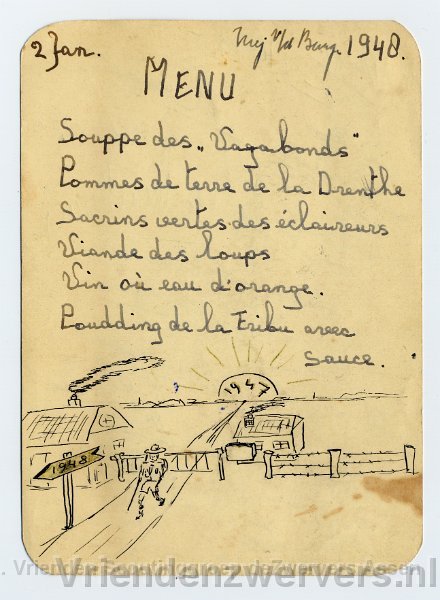 2 Jan. Mej v/d Berg. 1948.
MENU
Souppe des „Vagabonds"
Pommes de terre de la Drenthe
Sacrins vertes des éclaireurs
Viande des loups
Vin où eau d'orange.
Poudding de la Tribu avec
sauce.
1947
1948
Vrienden Scoutinggroep de Zwervers Assen
Vriendenzwervers.nl